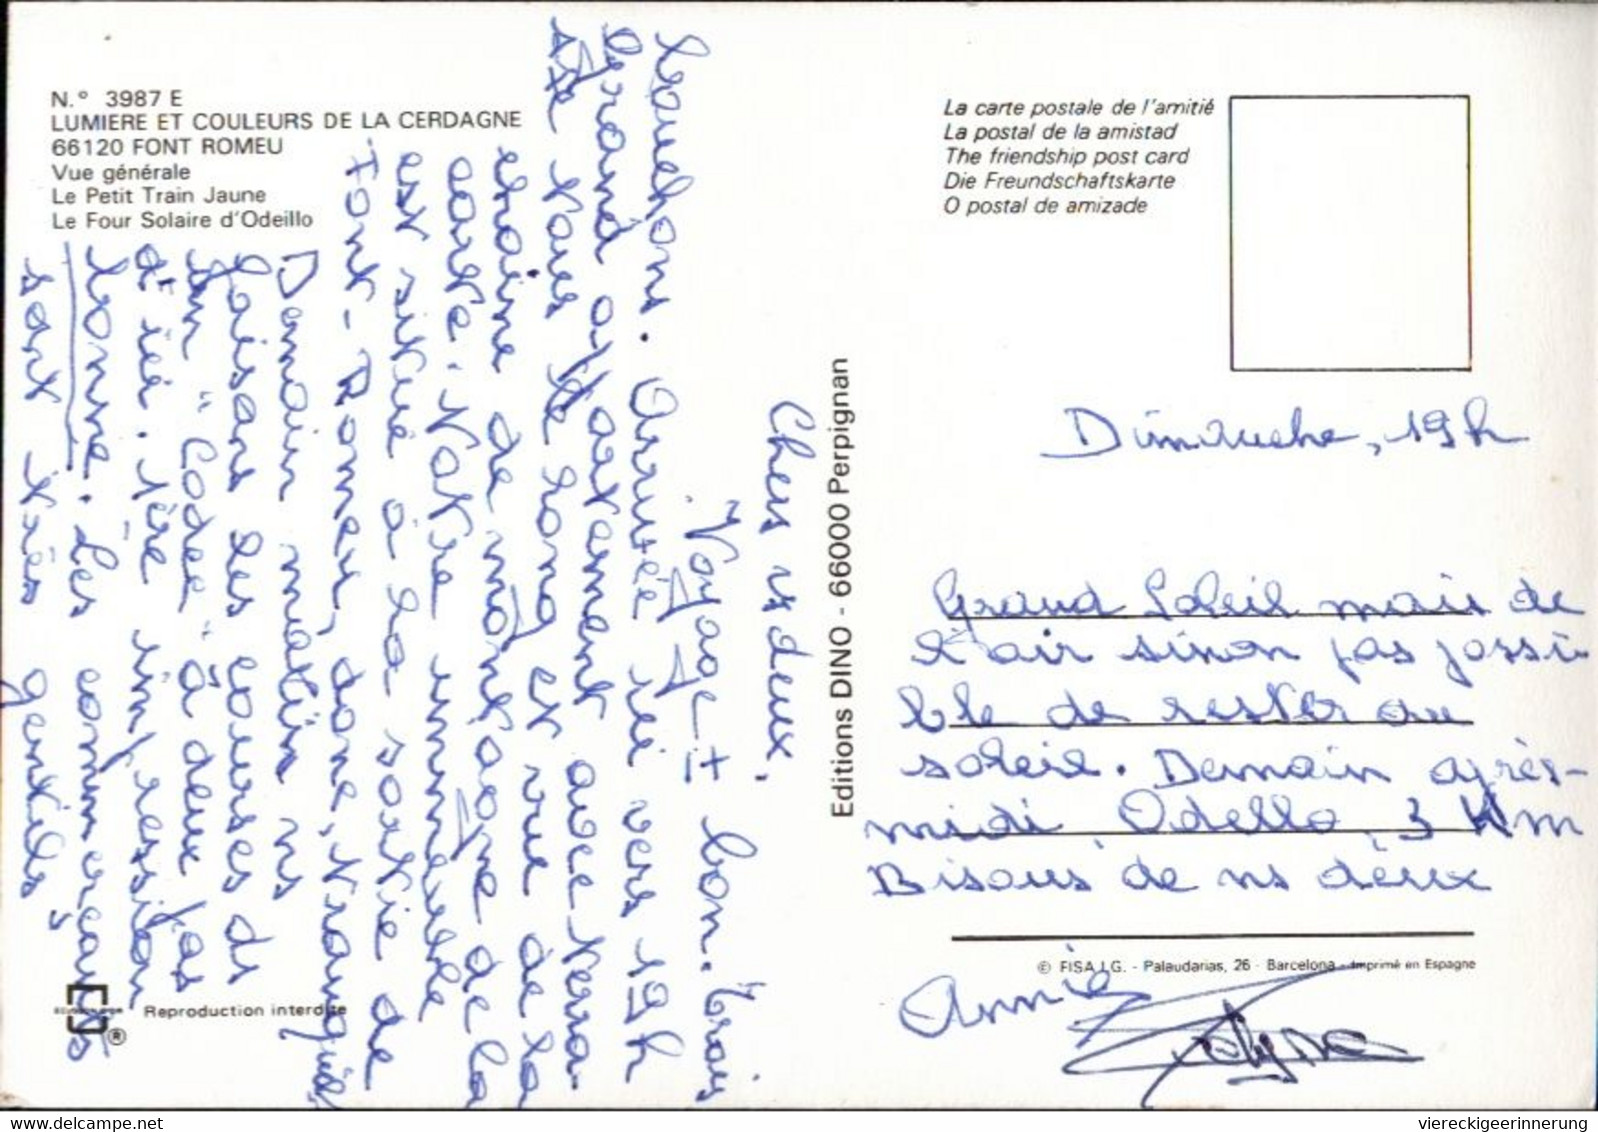 N.º 3987 E
LUMIERE ET COULEURS DE LA CERDAGNE
66120 FONT ROMEU
Vue générale
Le Petit Train Jaune
Le Four Solaire d'Odeillo
La carte postale de l'amitié
La postal de la amistad
The friendship post card
Die Freundschaftskarte
O postal de amizade
Editions DINO - 66000 Perpignan
Chers vs deux,
Voyage ± bon. Trois
bouchons. Arrivée ici vers 19h
Grand appartement avec terra-
sse vers le long et vue de la
chaîne de montagne de la
carte. Notre immeuble
est situé à la sortie de
Font-Romeu, donc, tranquille
Demain matin ns
faisons les courses ds
un "Codec" à deux pas
d'ici. 1ère impression
bonne. Les commerçants
sont très gentils
Dimanche, 19h
Grand Soleil mais de
l'air sinon pas possi-
ble de rester au
soleil. Demain après-
midi, Odello, 3 Km
Bisous de ns deux
Annie
© FISA I.G. - Palaudarias, 26 - Barcelona - Imprimé en Espagne
Reproduction interdite
®
www.delcampe.net
viereckigeerinnerung